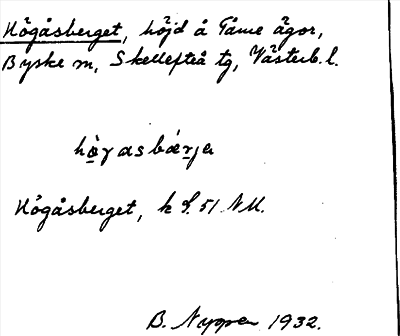 Högåsberget, höjd å Tåme ägor,
Byske sn, Skellefteå tg, Västerb. l.
högasbärjer
Högåsberget, k S. 51 NV.
B. Nygren 1932.